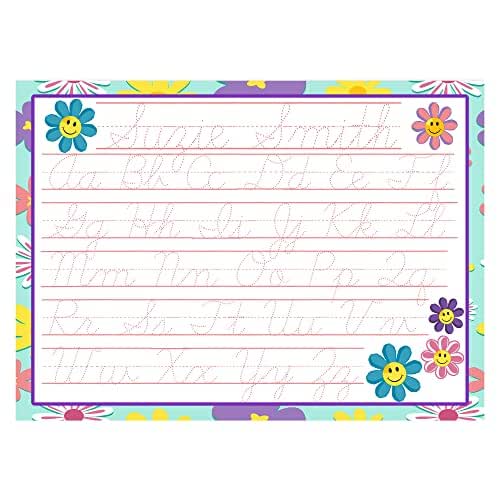 Suzie Smith
Aa Bb Cc Dd Ee Ff
Gg Hh Ii Jj Kk Ll
Mm Nn Oo Pp Qq
Rr Ss Tt Uu Vv
Ww Xx Yy Zz